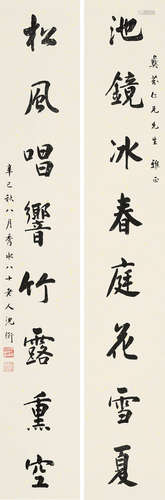 池鏡冰春庭花雪夏
仁兄先生雅正
松風唱響竹露熏空
辛巳秋八月秀水八十老人沈衛